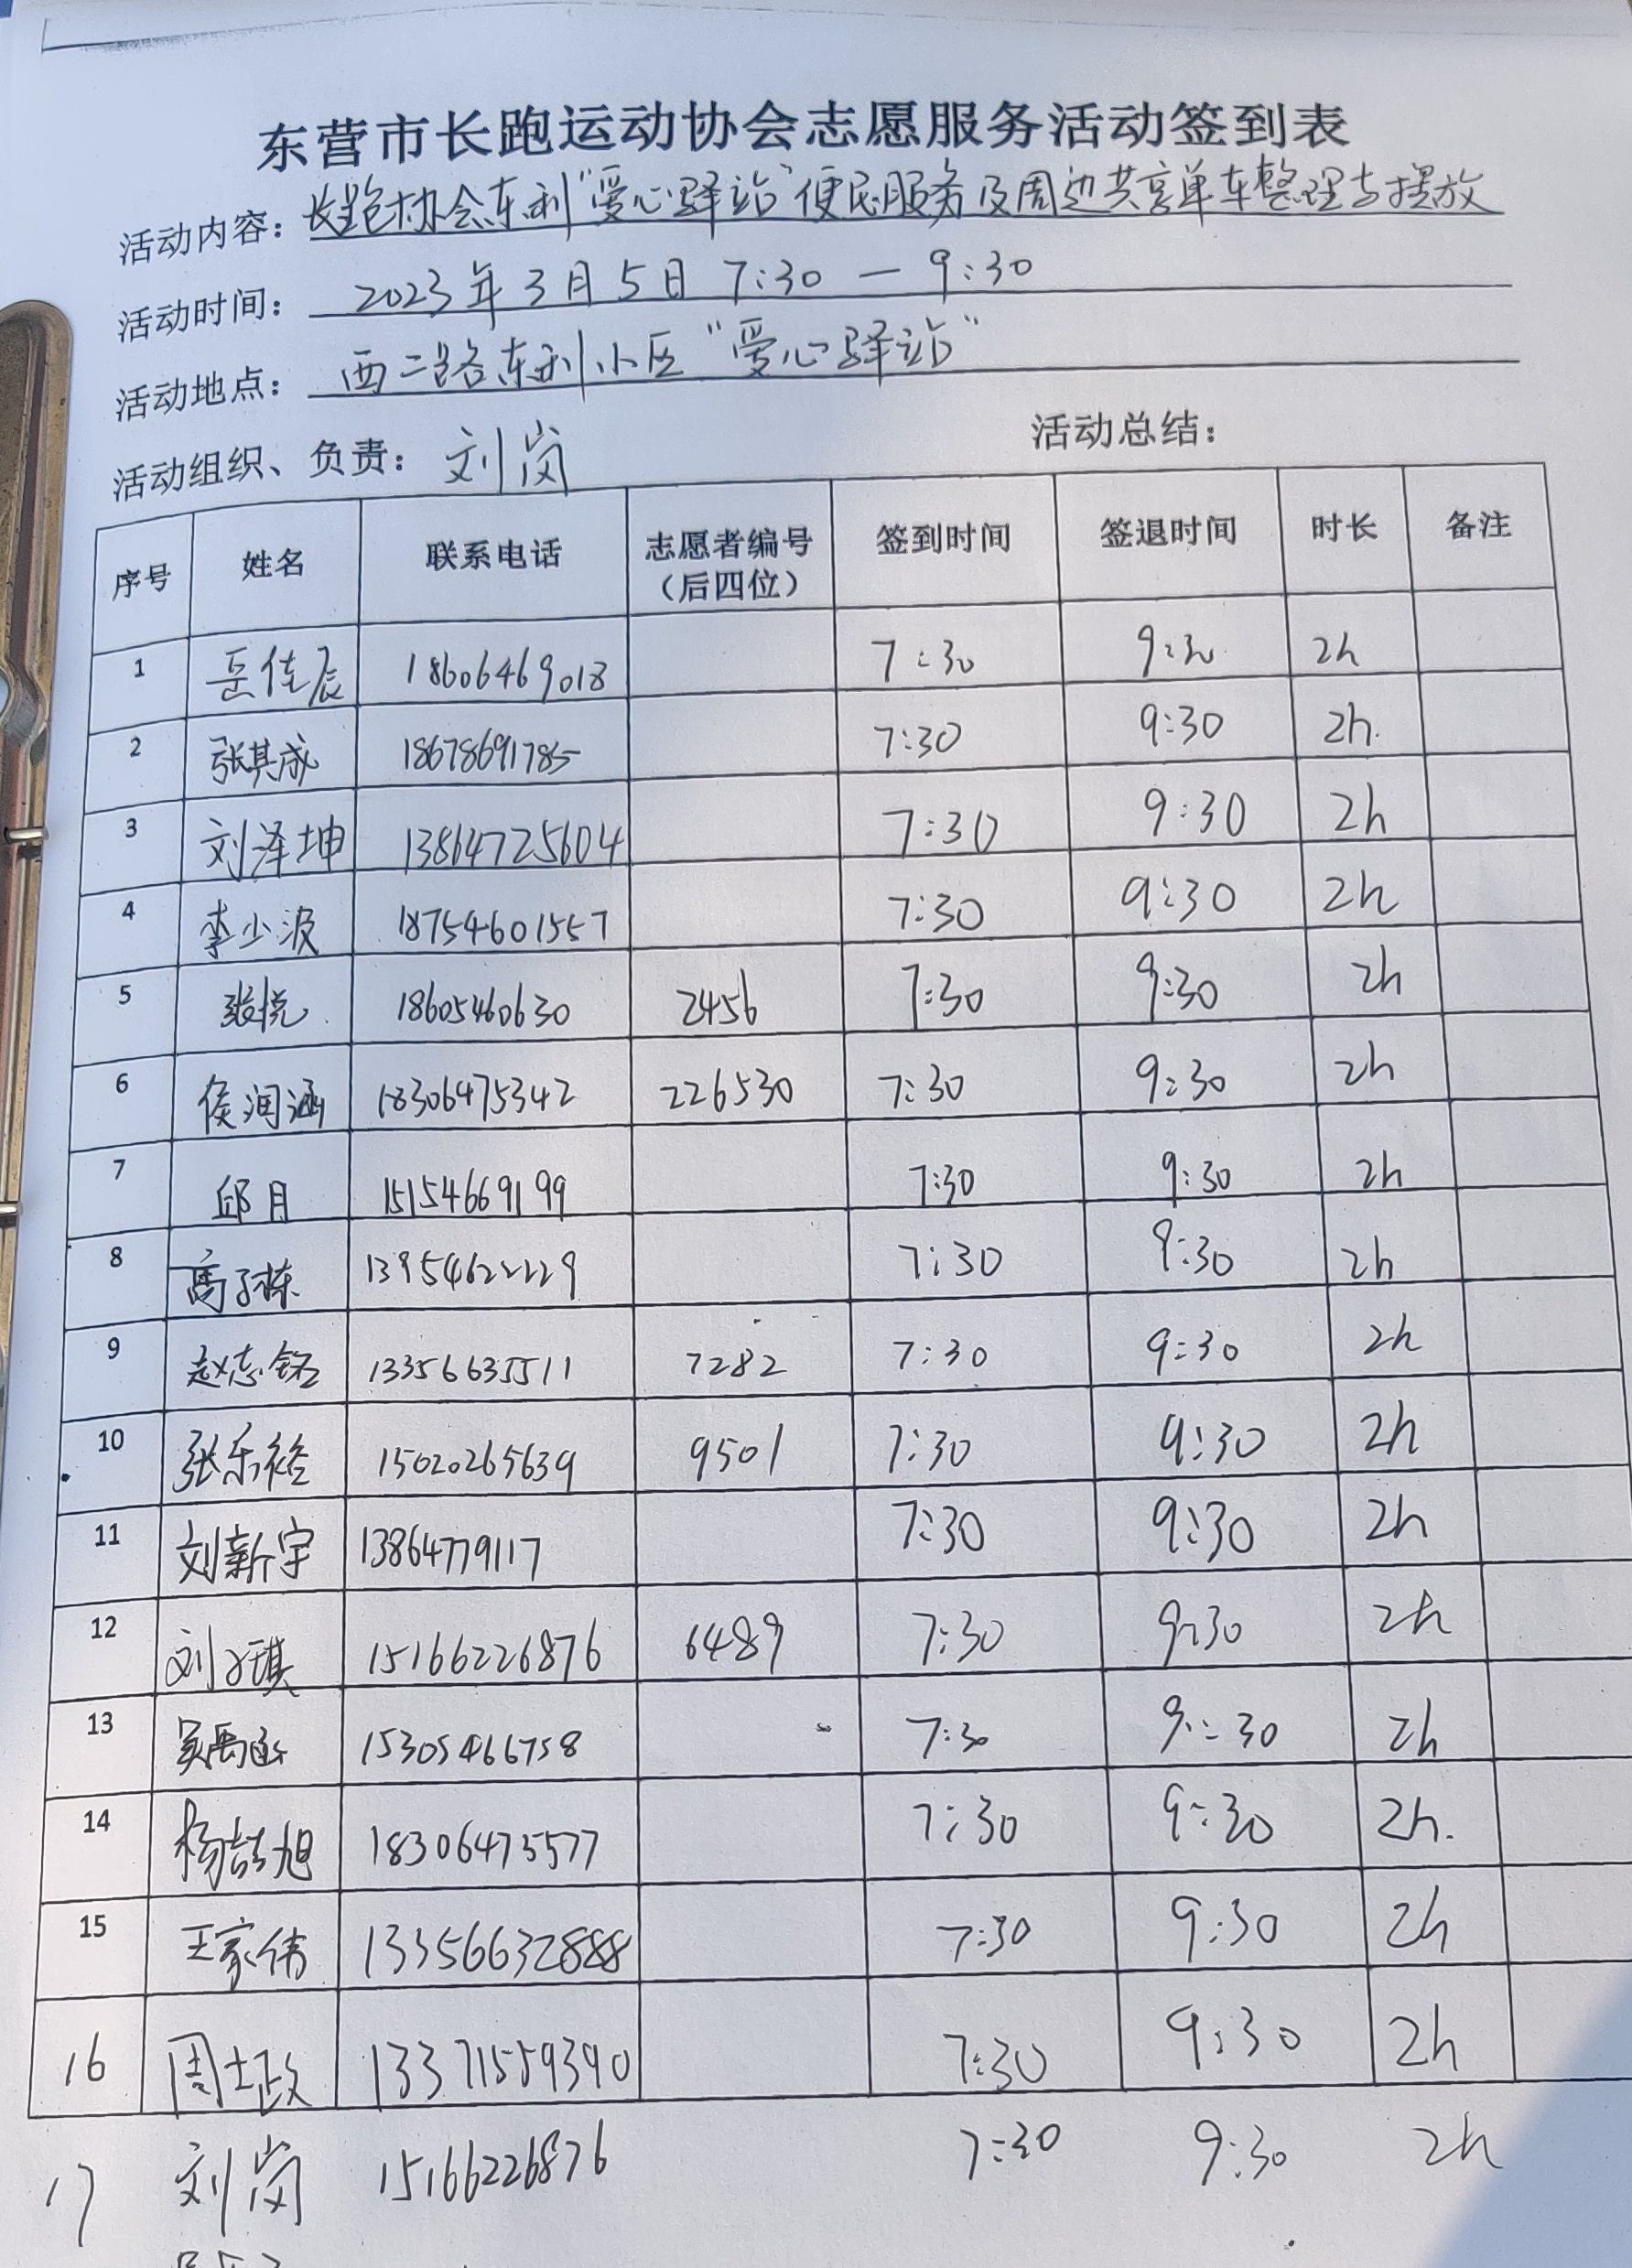 东营市长跑运动协会志愿服务活动签到表
活动内容：长跑协会东利“爱心驿站”便民服务及周边共享单车整理与摆放
活动时间：2023年3月5日 7:30 — 9:30
活动地点：西二路东利小区“爱心驿站”
活动组织、负责：刘岗 活动总结：
序号 姓名 联系电话 志愿者编号（后四位） 签到时间 签退时间 时长 备注
1 岳佳辰 18606469018 7:30 9:30 2h
2 张其成 18678691785 7:30 9:30 2h.
3 刘泽坤 13864725604 7:30 9:30 2h
4 李少波 18754601557 7:30 9:30 2h
5 张悦 18605460630 2456 7:30 9:30 2h
6 侯润涵 18306475342 226530 7:30 9:30 2h
7 邱月 15154669199 7:30 9:30 2h
8 高子栋 13954622229 7:30 9:30 2h
9 赵志铭 13356635511 7282 7:30 9:30 2h
10 张乐裕 15020265639 9501 7:30 9:30 2h
11 刘新宇 13864779117 7:30 9:30 2h
12 刘子琪 15166226876 6489 7:30 9:30 2h
13 吴禹涵 15305466758 7:30 9:30 2h
14 杨喆旭 18306475577 7:30 9:30 2h.
15 王家伟 13356632888 7:30 9:30 2h
16 周士政 13371559390 7:30 9:30 2h
17 刘岗 15166226876 7:30 9:30 2h